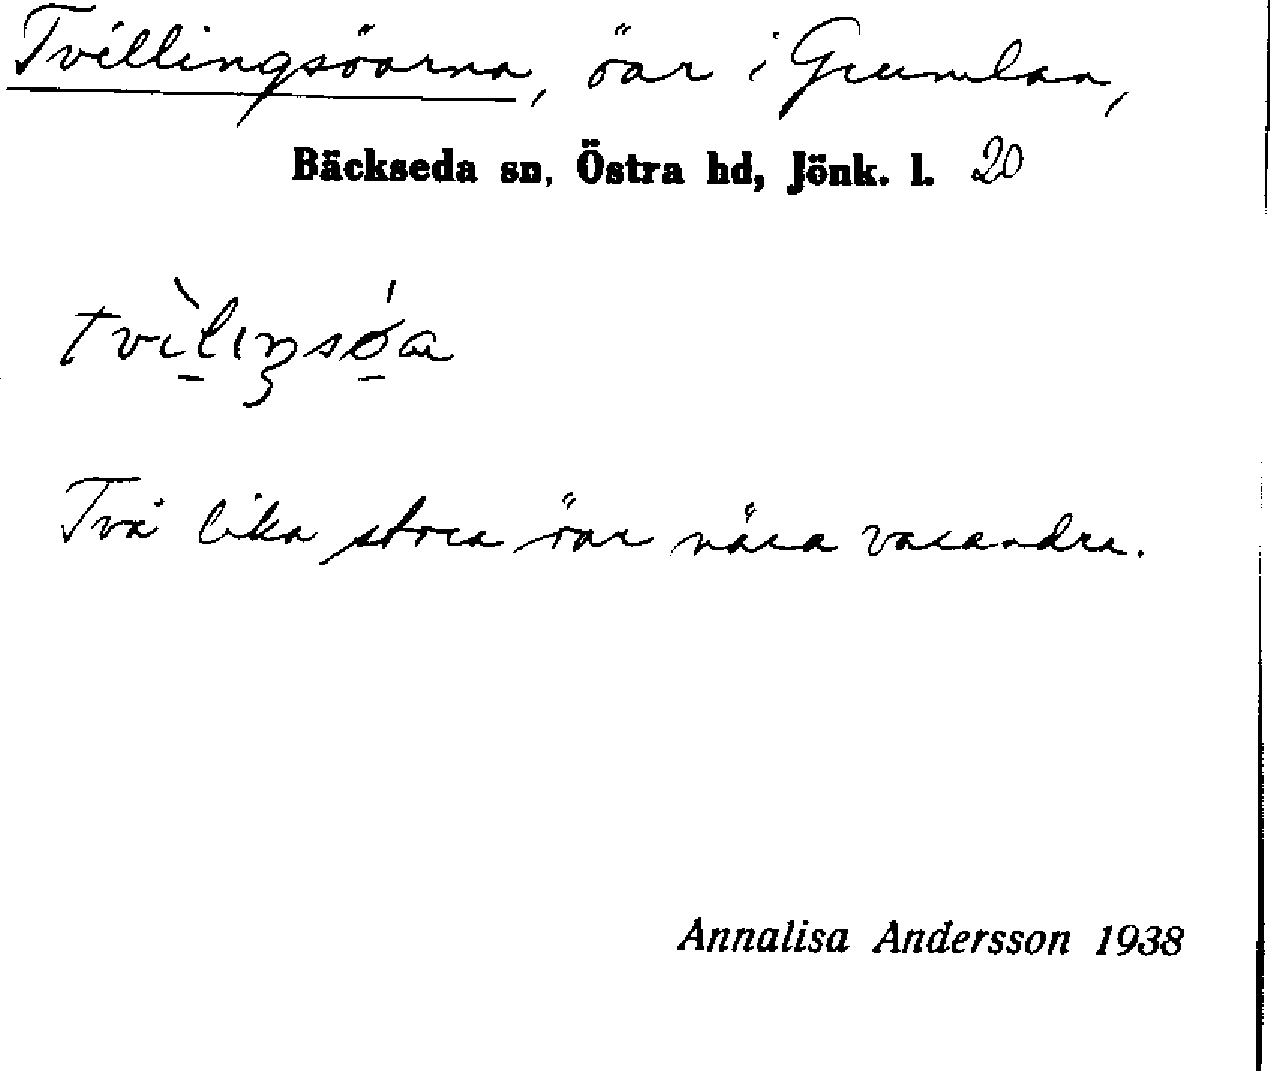 Tvillingsöarna, öar i Grumlan,
Bäckseda sn, Östra hd, Jönk. l. 20
tvìlıŋsǿa
Två lika stora öar nära varandra.
Annalisa Andersson 1938